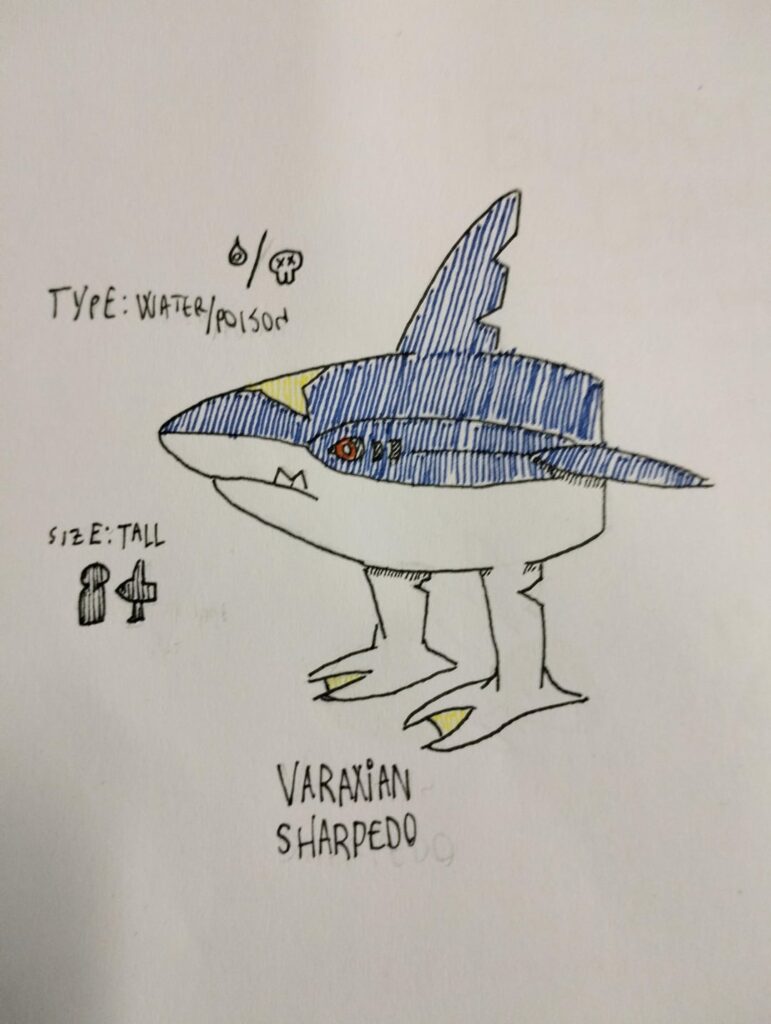 TYPE: WATER/POISON
SIZE: TALL
VARAXiAN
SHARPEDO